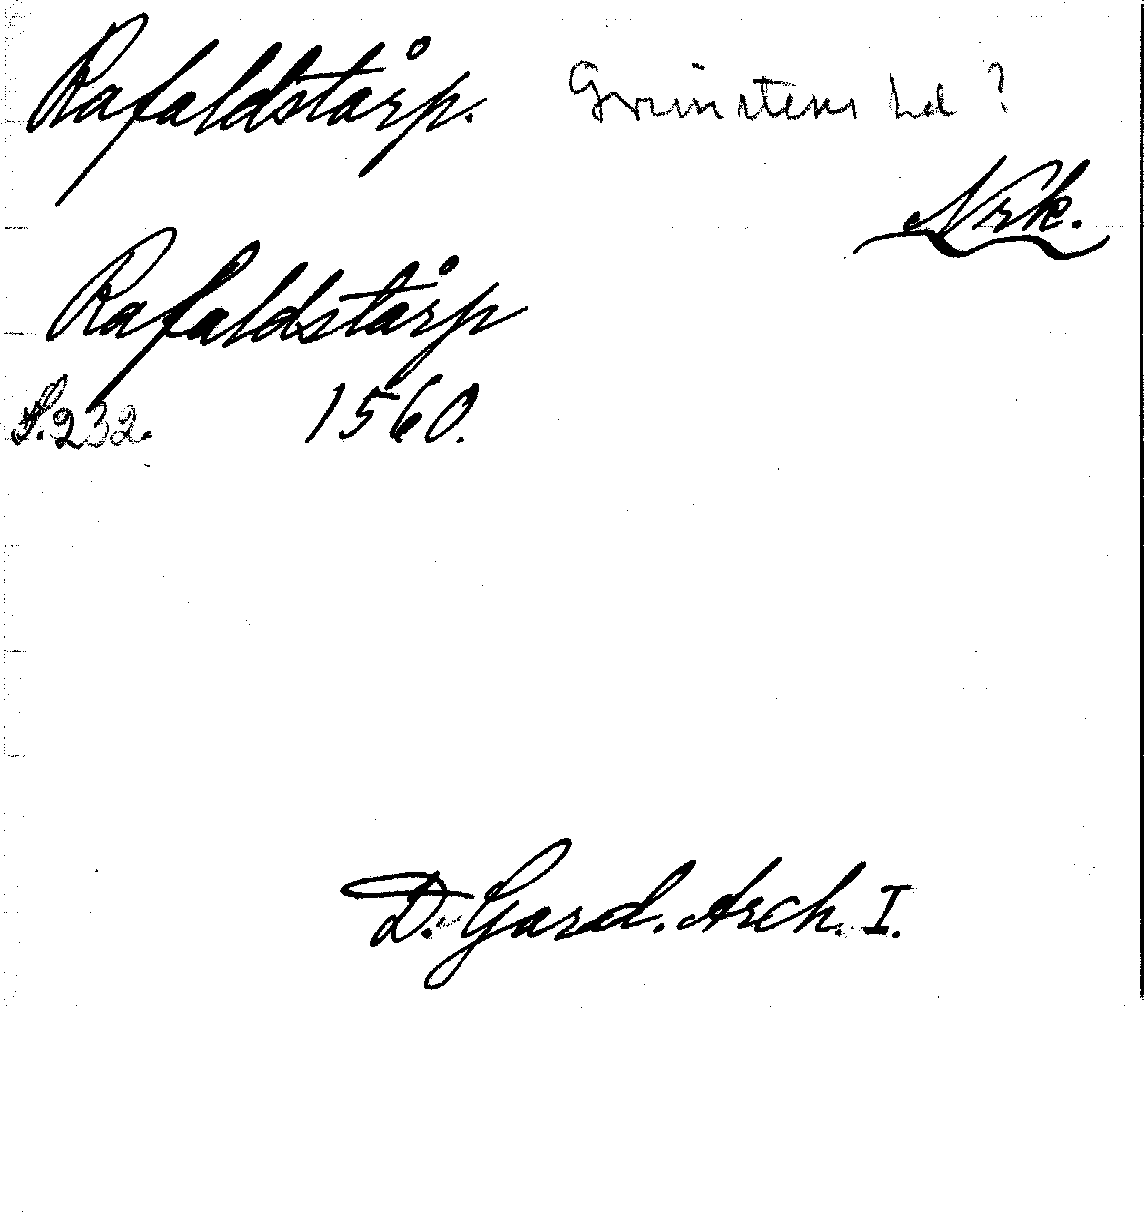 Rafaldstårp. Grimstens hd ?
Nrk.
Rafaldstårp
S. 232. 1560.
D. Gard. Arch. I.